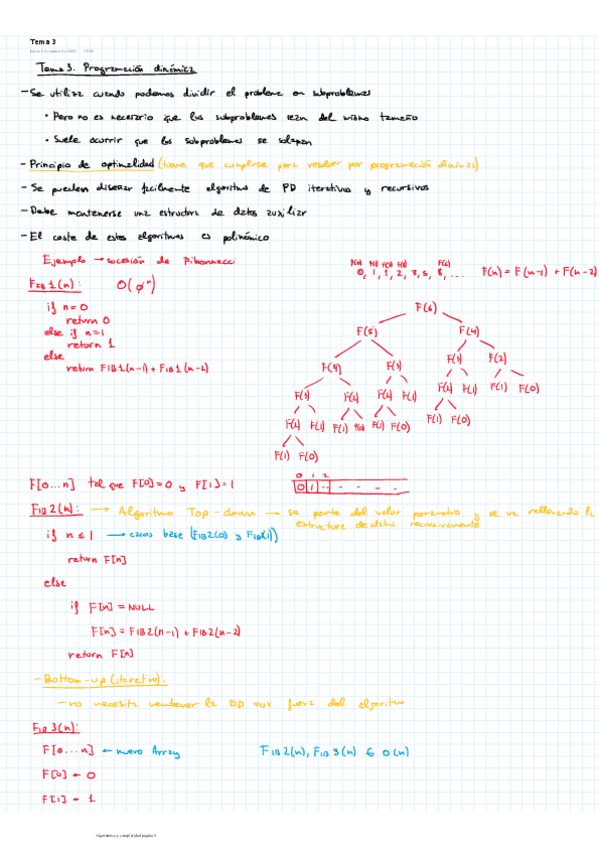 Tema 3
Tema 3. Programación dinámica
- Se utiliza cuando podemos dividir el problema en subproblemas
• Pero no es necesario que los subproblemas sean del mismo tamaño
• Suele ocurrir que los subproblemas se solapan
- Principio de optimalidad (tiene que cumplirse para resolver por programación dinámica)
- Se pueden diseñar facilmente algoritmos de PD iterativos y recursivos
- Debe mantenerse una estructura de datos auxiliar
- El coste de estos algoritmos es polinómico
Ejemplo → sucesión de Fibonacci
0, 1, 1, 2, 3, 5, 8, ... F(n) = F(n-1) + F(n-2)
FIB1(n): O(φⁿ)
if n=0
return 0
else if n=1
return 1
else
return FIB1(n-1)+FIB1(n-2)
F(6)
F(5) F(4)
F(4) F(3) F(3) F(2)
F(3) F(2) F(2) F(1) F(2) F(1) F(1) F(0)
F(2) F(1) F(1) F(0) F(1) F(0) F(1) F(0)
F(1) F(0)
F[0...n] tal que F[0]=0 y F[1]=1
0 1 2
0 1 ... - - - -
FIB2(n): → Algoritmo Top-down → se parte del valor parámetro y se va rellenando la
estructura de datos recursivamente
if n ≤ 1 → casos base (FIB2(0) y FIB2(1))
return F[n]
else
if F[n] = NULL
F[n] = FIB2(n-1) + FIB2(n-2)
return F[n]
- Bottom-up (iterativo):
- no necesita mantener la ED aux fuera del algoritmo
FIB3(n):
F[0...n] ← nuevo Array FIB2(n), FIB3(n) ∈ O(n)
F[0] ← 0
F[1] ← 1